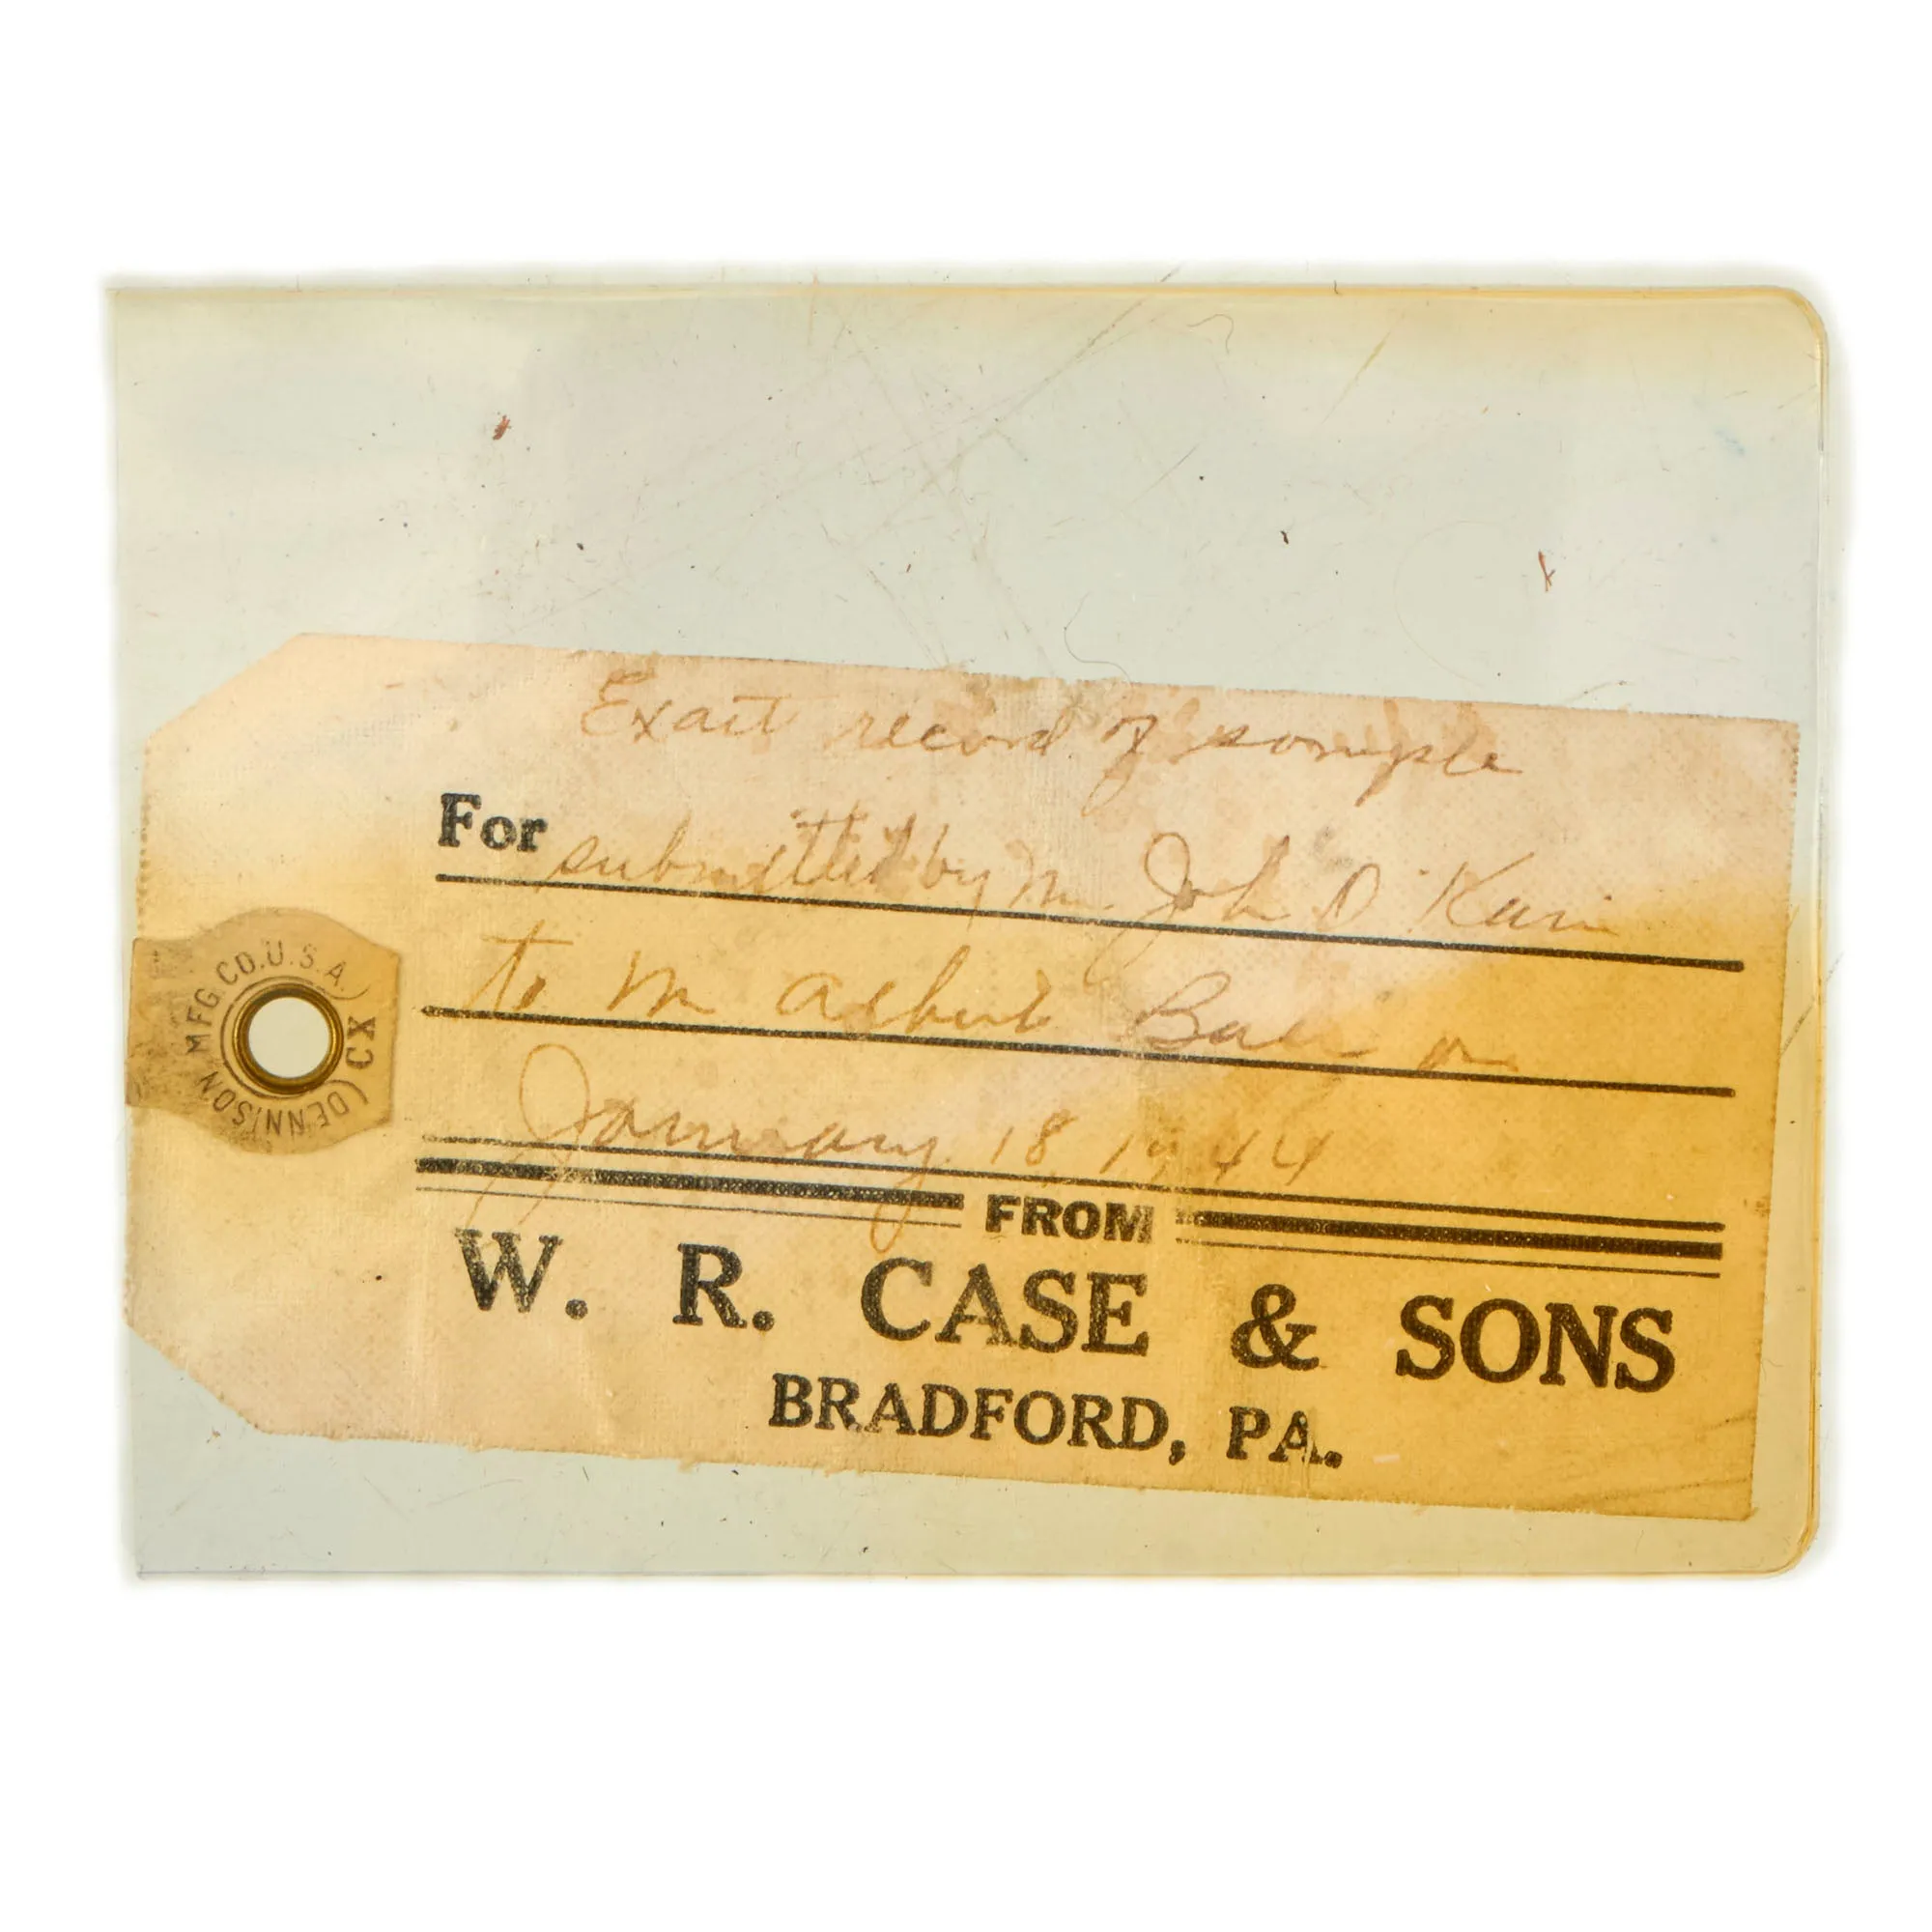 Exact record of sample
For submitted by Mr. John D
to Mr Albert on
January 18, 1944
FROM
W. R. CASE & SONS
BRADFORD, PA.
(DENNISON MFG.CO.U.S.A.) CX